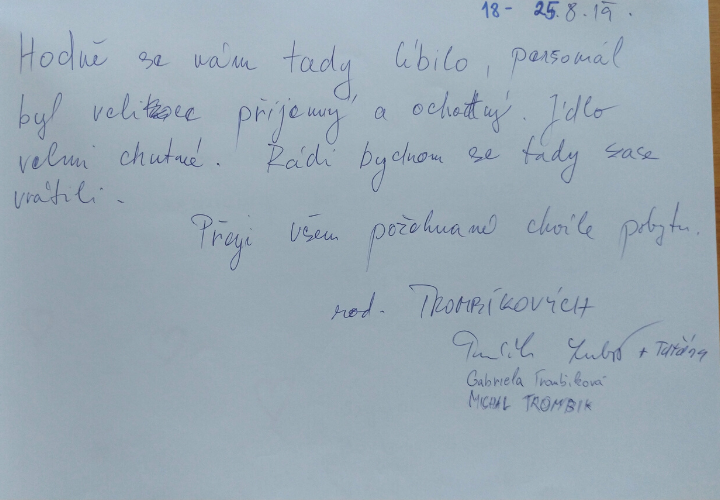 18- 25.8.19.
Hodně se nám tady líbilo, personál
byl velice příjemný a ochotný. Jídlo
velmi chutné. Rádi bychom se tady zase
vrátili.
Přeji všem požehnané chvíle pobytu.
rod. TROMBÍKOVÝCH
+ Taťána
Gabriela Trombiková
MICHAL TROMBIK